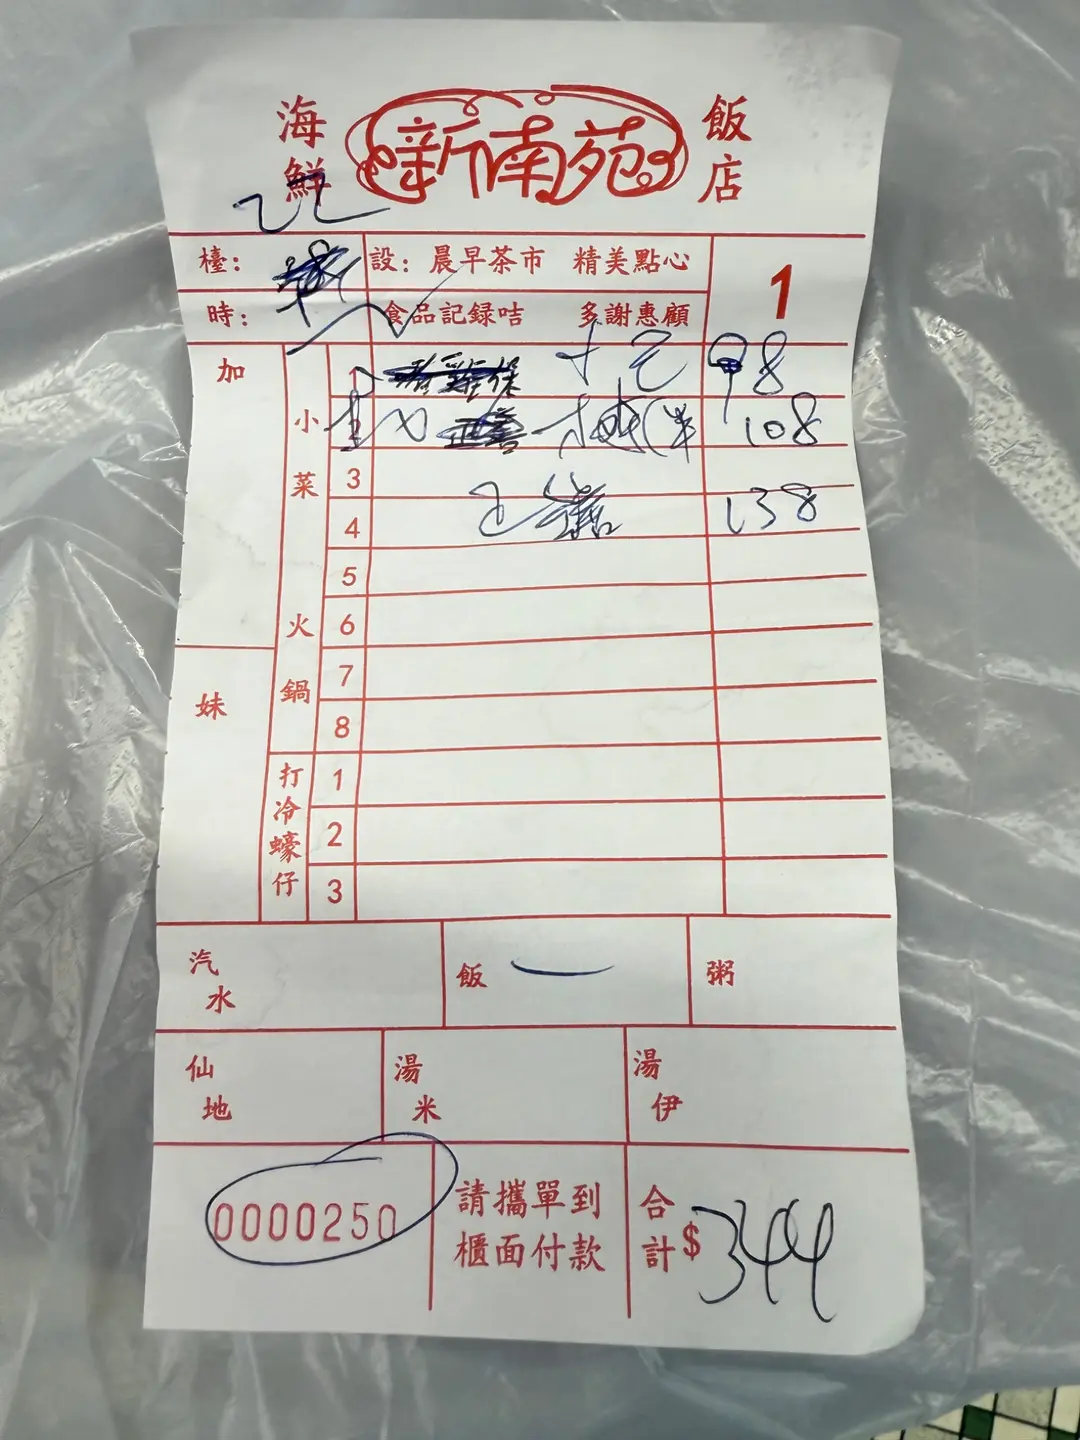 海鮮 新南苑 飯店
檯： 設：晨早茶市 精美點心 1
時： 食品記録咭 多謝惠顧
加 小菜火鍋 1 98
2 108
3
4 138
5
6
妹 7
8
打冷蠔仔 1
2
3
汽水 飯 一 粥
仙地 湯米 湯伊
0000250 請攜單到櫃面付款 合計 $344